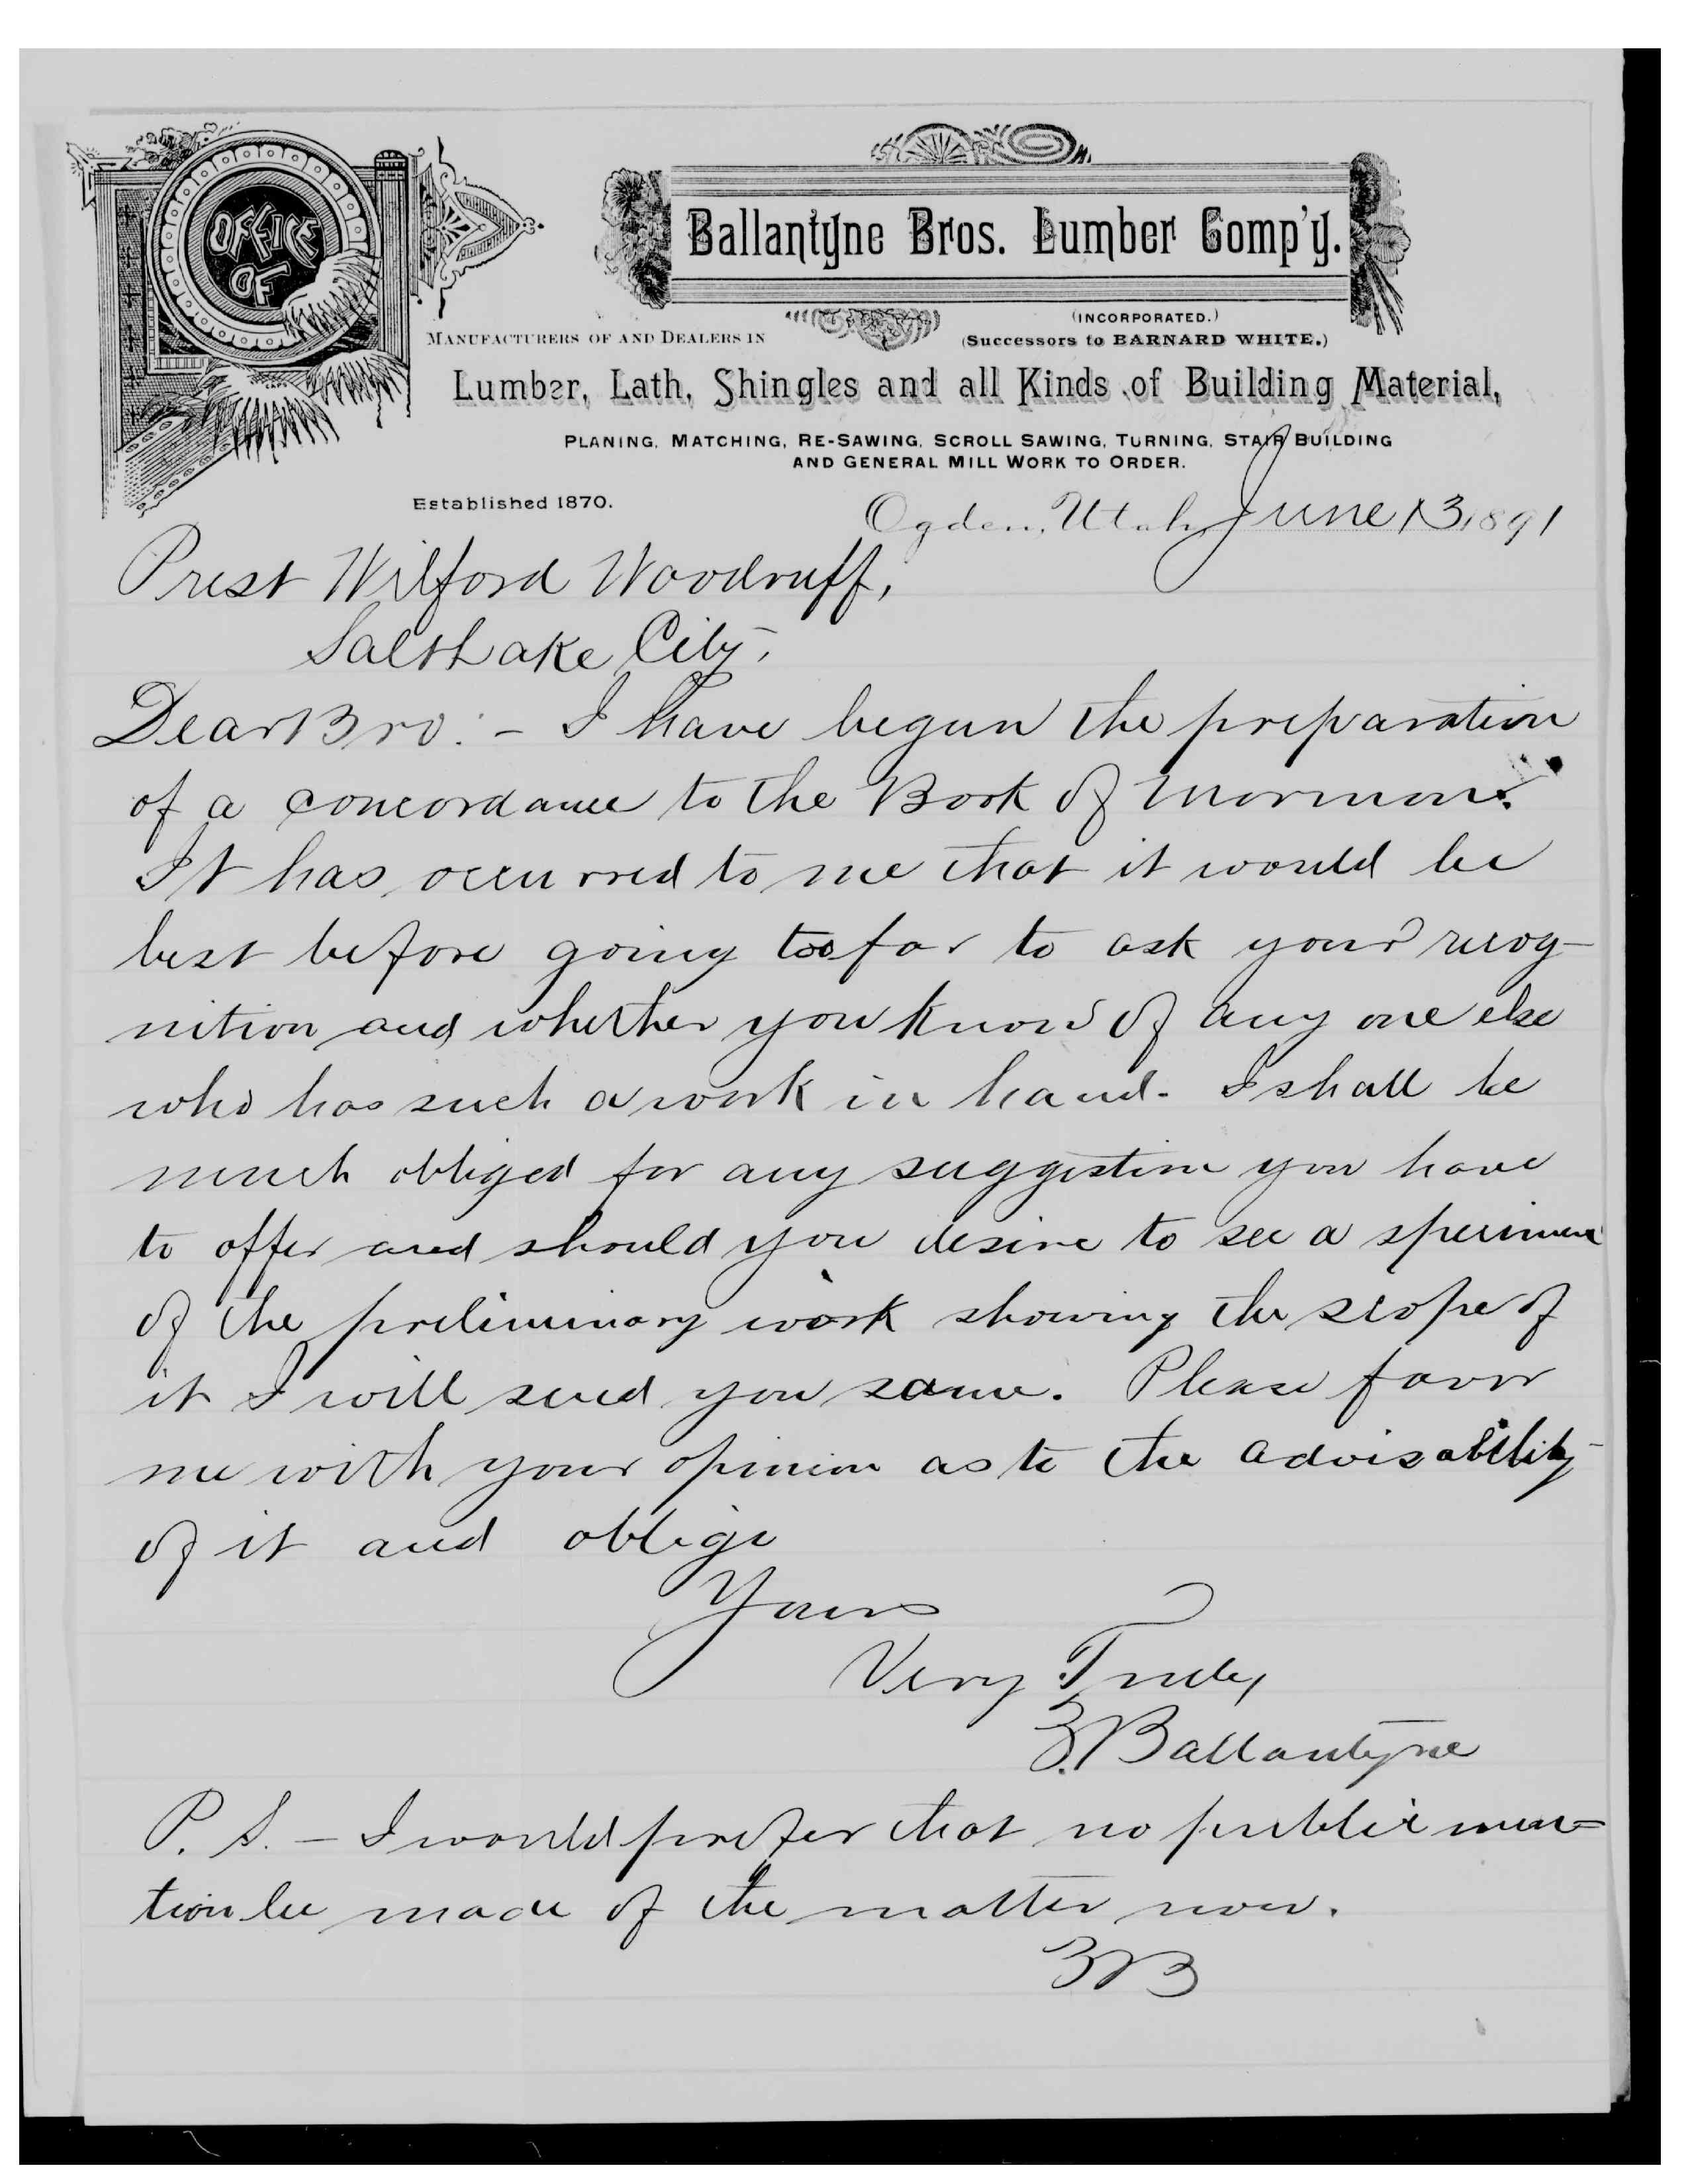 OFFICE
OF
Ballantyne Bros. Lumber Comp'y.
(INCORPORATED.)
MANUFACTURERS OF AND DEALERS IN
(Successors to BARNARD WHITE.)
Lumber, Lath, Shingles and all Kinds of Building Material,
PLANING, MATCHING, RE-SAWING, SCROLL SAWING, TURNING, STAIR BUILDING
AND GENERAL MILL WORK TO ORDER.
Established 1870.
Ogden, Utah, June 13 1891
Prest Wilford Woodruff,
Salt Lake City,
Dear Bro: - I have begun the preparation
of a concordance to the Book of Mormon.
It has occurred to me that it would be
best before going too far to ask your recog-
nition and whether you know of any one else
who has such a work in hand. I shall be
much obliged for any suggestion you have
to offer and should you desire to see a specimen
of the preliminary work showing the scope of
it I will send you same. Please favor
me with your opinion as to the advisability
of it and oblige
Yours
Very Truly
Z. Ballantyne
P. S. - I would prefer that no public men=
tion be made of the matter now.
ZB